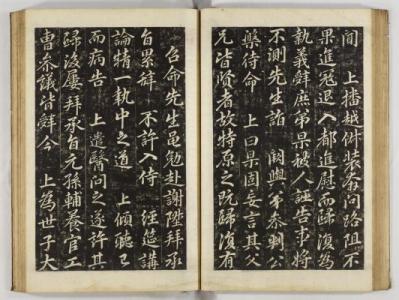 間　上播越俶裝奔問路阻不
果進冦退入都進慰而歸復為
執義辭庶弟果被人誣告事將
不測先生詣　闕與李參判公
藁待命　上曰果固妄言其父
兄皆賢者故特原之旣歸復有
召命先生黽勉赴謝陞拜承
旨累辭　不許入侍　經筵講
論精一執中之道　上傾聽已
而病告　上遣醫問之遂許其
歸後屢拜承旨元孫輔養官工
曹參議皆辭今　上為世子大